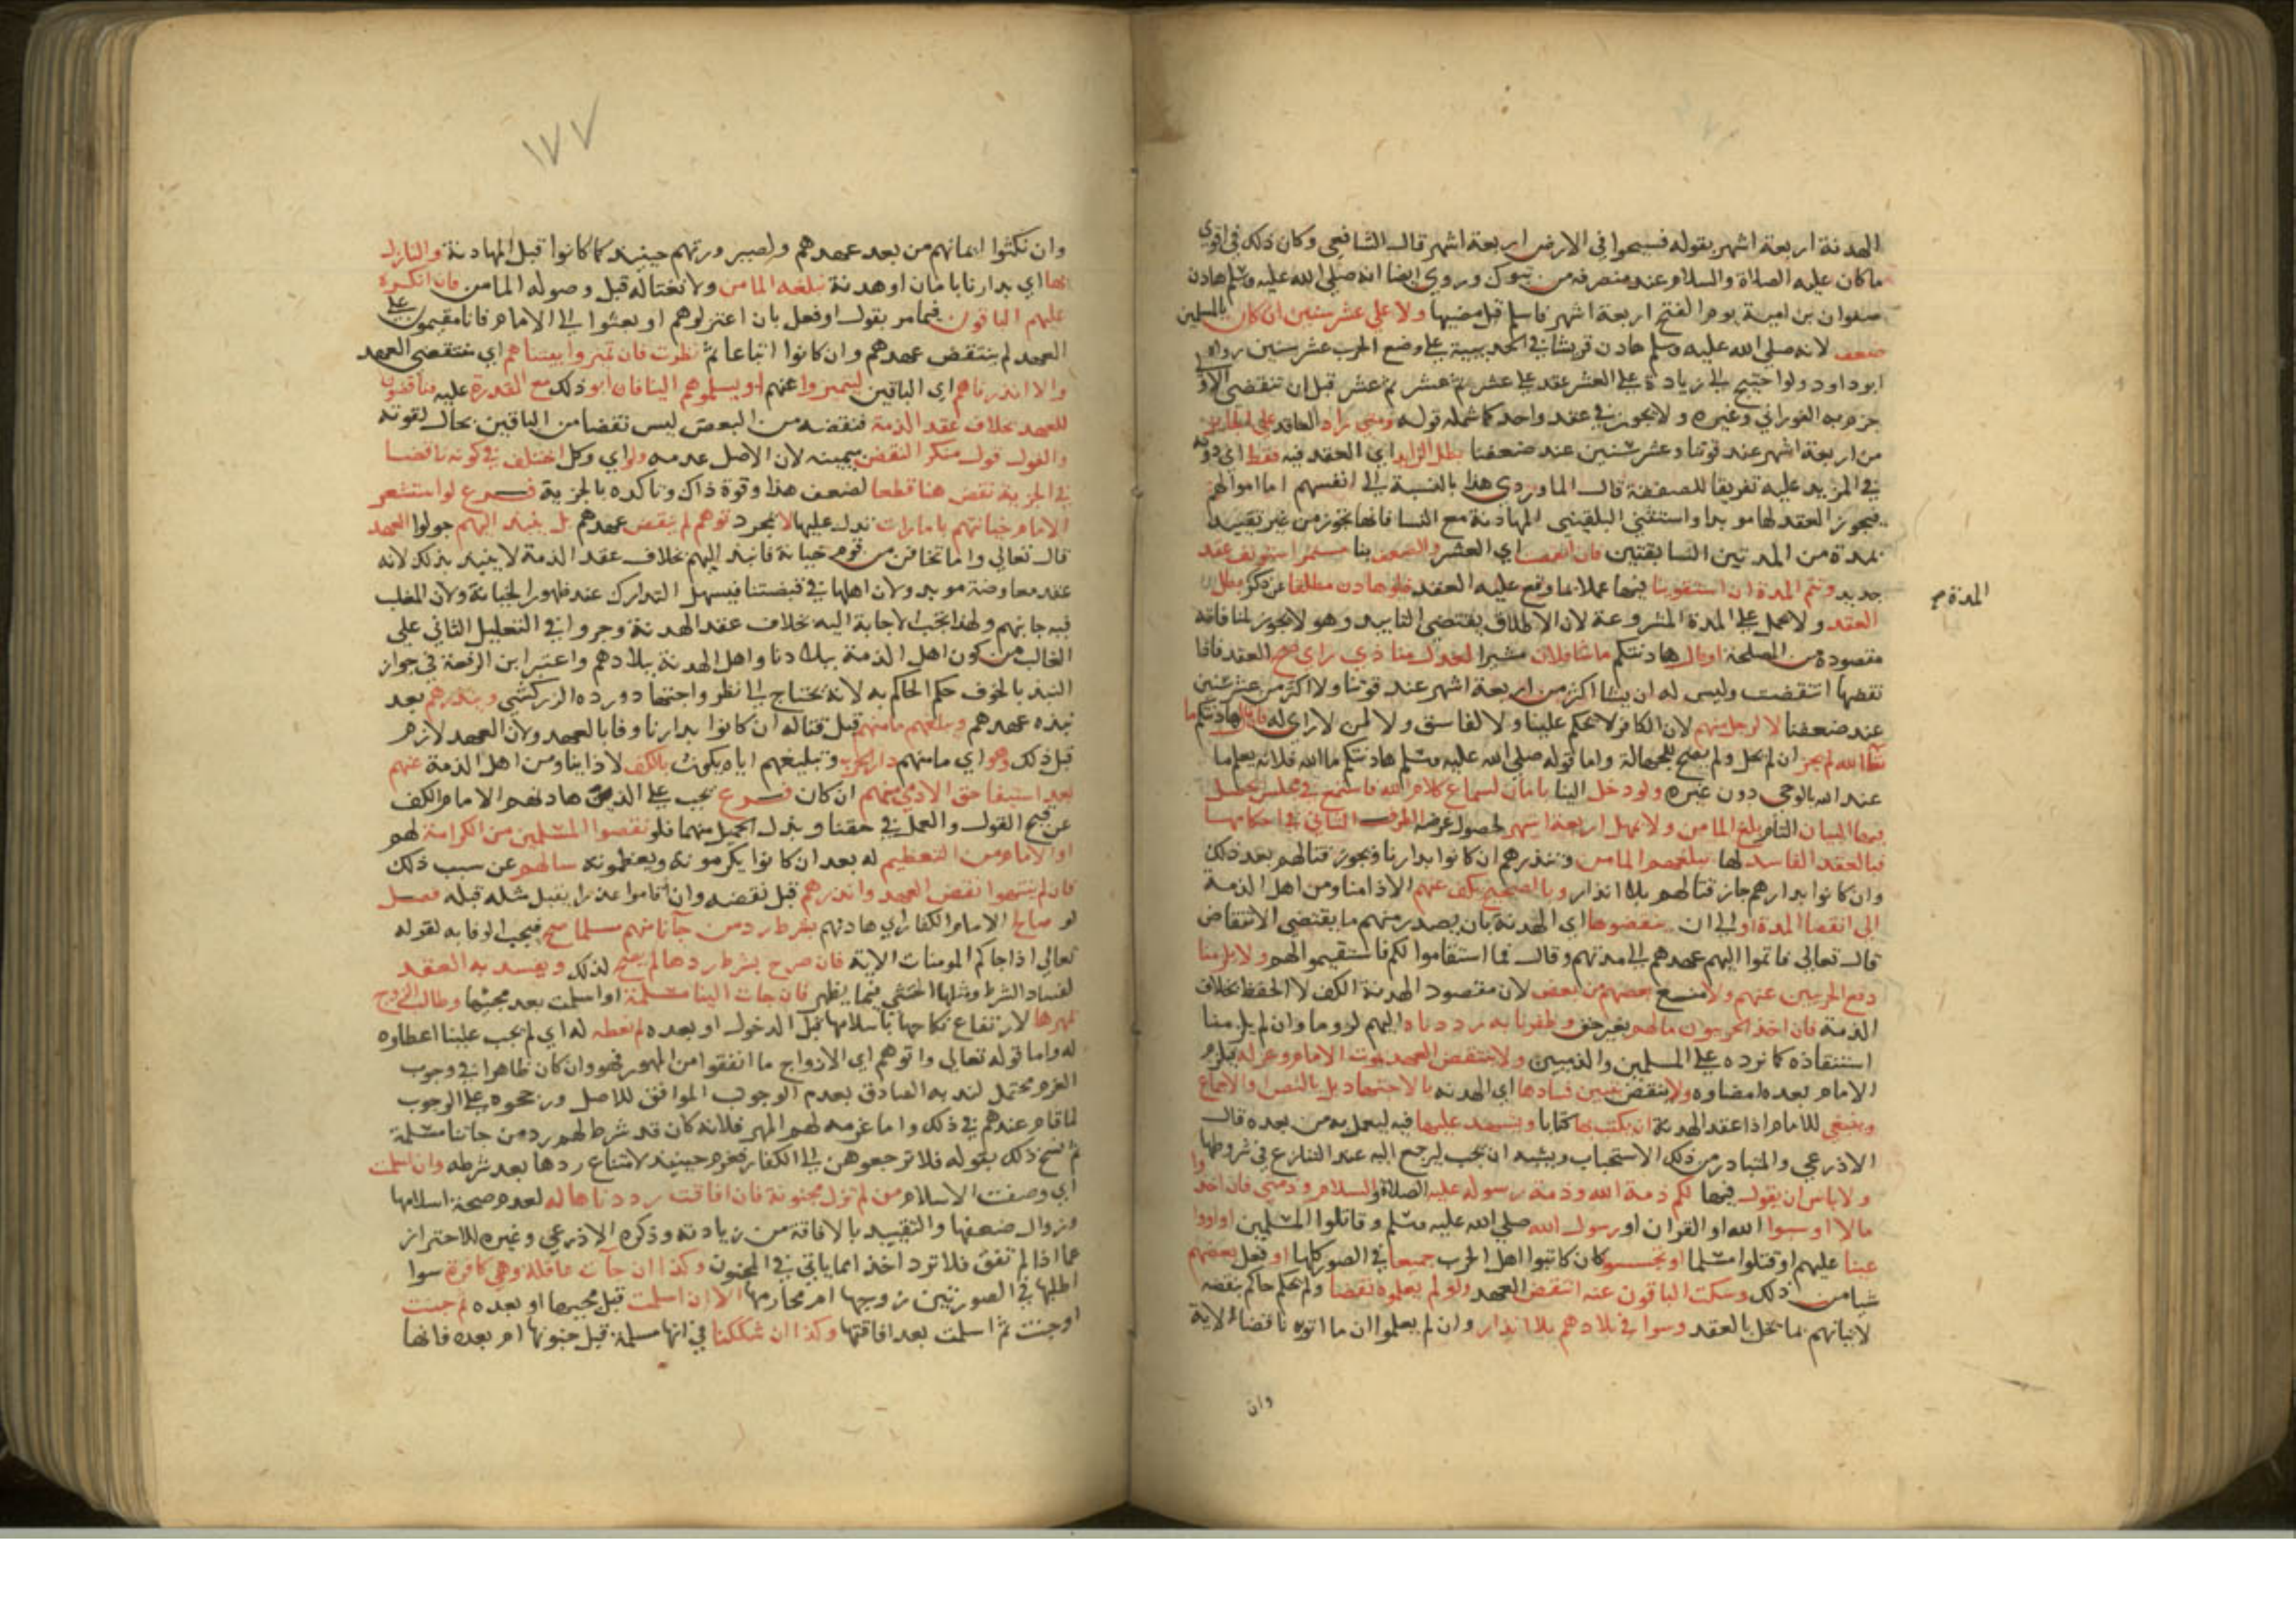 الهدنة اربعة اشهر بقوله فسيحوا في الارض اربعة اشهر قال الشافعي وكان ذلك في اقوى
ما كان عليه الصلاة والسلام عند منصرفه من تبوك وروي ايضا انه صلى الله عليه وسلم هادن
صفوان بن امية يوم الفتح اربعة اشهر فاسلم قبل مضيها ولا على عشر سنين ان كان بالمسلمين
ضعف لانه صلى الله عليه وسلم هادن قريشا في الحديبية على وضع الحرب عشر سنين رواه
ابو داود ولو احتيج الى زيادة على العشر عقد على عشر ثم عشر ثم عشر قبل ان تنقضي الاولى
جزم به الفوراني وغيره ولا يجوز في عقد واحد كما شمله قوله ومتى زاد العاقد على الجائز
من اربعة اشهر عند قوتنا وعشر سنين عند ضعفنا بطل الزايد اي العقد فيه فقط اي دونه
في المزيد عليه تفريقا للصفقة قال الماوردي هذا بالنسبة الى انفسهم اما اموالهم
فيجوز العقد لها موبدا واستثنى البلقيني المهادنة مع النسا فانها تجوز من غير تقييد
بمدة من المدتين السابقتين فان انقضت اي العشر والضعف بنا مستمر استونف عقد
جديد وتتم المدة ان استقوينا فيها عملا بما وقع عليه العقد فلو هادن مطلقا عن ذكر بطل
المدة صح
العقد ولا يحمل على المدة المشروعة لان الاطلاق يقتضي التابيد وهو لا يجوز لمنافاته
مقصوده من المصلحة او قال هادنتكم ما شا فلان مشيرا لعدل منا ذي راي صح العقد فاذا
نقضها انتقضت وليس له ان يشا اكثر من اربعة اشهر عند قوتنا ولا اكثر من عشر سنين
عند ضعفنا لا لرجل منهم لان الكافر لا يحكم علينا ولا لفاسق ولا لمن لا راي له فان قال هادنتكم ما
شا الله لم يجز ان لم يحل ولم يصح للجهالة واما قوله صلى الله عليه وسلم هادنتكم ما الله فلانه يعلم ما
عند الله بالوحي دون غيره ولو دخل الينا بامان لسماع كلام الله فاستمع في مجلس يحصل
فيها البيان التام بلغ المامن ولا يمهل اربعة اشهر لحصول غرضه الطرف الثاني في احكامها
فبالعقد الفاسد لها نبلغهم المامن وننذرهم ان كانوا بدارنا ويجوز قتالهم بعد ذلك
وان كانوا بدارهم جاز قتالهم بلا انذار وبالصحيح نكف عنهم الاذا منا ومن اهل الذمة
الى انقضا المدة او الى ان ينقضوها اي الهدنة بان يصدر منهم ما يقتضي الانتقاض
قال تعالى فاتموا اليهم عهدهم الى مدتهم وقال فما استقاموا لكم فاستقيموا لهم ولا يلزمنا
دفع الحربيين عنهم ولا منع بعضهم من بعض لان مقصود الهدنة الكف لا الحفظ بخلاف
الذمة فان اخذ الحربيون مالهم بغير حق وظفرنا به رددناه اليهم لزوما وان لم يلزمنا
استنقاذه كما نرده على المسلمين والذميين ولا ينتقض العهد بموت الامام وعزله فيلزم
الامام بعده امضاوه ولا ينقض بتبين فسادها اي الهدنة بالاجتهاد بل بالنص والاجماع
وينبغي للامام اذا عقد الهدنة ان يكتب بها كتابا ويشهد عليها فيه ليعمل به من بعده قال
الاذرعي والمتبادر من ذلك الاستحباب ويشبه ان يجب ليرجع اليه عند التنازع في شروطها
ولا باس ان يقول فيها لكم ذمة الله وذمة رسوله عليه الصلاة والسلام وذمتي فان اخذوا
مالا او سبوا الله او القران او رسول الله صلى الله عليه وسلم وقاتلوا المسلمين او اووا
عينا عليهم او قتلوا مسلما او تجسسوا كان كاتبوا اهل الحرب جميعا في الصور كلها او فعل بعضهم
شيا من ذلك وسكت الباقون عنه انتقض العهد ولو لم يعلموه نقضا ولم يحكم حاكم بنقضه
لاتيانهم بما يخل بالعقد وسوا في بلادهم بلا انذار وان لم يعلموا ان ما اتوه ناقضا لاية
وان
١٧٧
وان نكثوا ايمانهم من بعد عهدهم ولصيرورتهم حينيذ كما كانوا قبل المهادنة والنازل
بها اي بدارنا بامان او هدنة نبلغه المامن ولا نغتاله قبل وصوله المامن فان انكره
عليهم الباقون فيما مر بقول او فعل بان اعتزلوهم او بعثوا الى الامام فانا مقيمون على
العهد لم ينتقض عهدهم وان كانوا اتباعا ثم نظرت فان تميزوا بيتناهم اي منتقضي العهد
والا انذرناهم اي الباقين ليتميزوا عنهم او يسلموهم الينا فان ابو ذلك مع القدرة عليه فناقضون
للعهد بخلاف عقد الذمة فنقضه من البعض ليس نقضا من الباقين بحال لقوته
والقول قول منكر النقض بيمينه لان الاصل عدمه ولو اي وكل اختلف في كونه ناقضا
في الجزية نقض هنا قطعا لضعف هذا وقوة ذاك وتاكده بالجزية فرع لو استشعر
الامام خيانتهم بامارات تدل عليها لا بمجرد توهم لم ينقض عهدهم بل ينبذ اليهم جوازا العهد
قال تعالى واما تخافن من قوم خيانة فانبذ اليهم بخلاف عقد الذمة لا ينبذ بذلك لانه
عقد معاوضة موبد ولان اهلها في قبضتنا فيسهل التدارك عند ظهور الخيانة ولان المغلب
فيه جانبهم ولهذا تجب الاجابة اليه بخلاف عقد الهدنة وجروا في التعليل الثاني على
الغالب من كون اهل الذمة ببلادنا واهل الهدنة ببلادهم واعتبر ابن الرفعة في جواز
النبذ بالخوف حكم الحاكم به لانه يحتاج الى نظر واجتهاد ورده الزركشي وينذرهم بعد
نبذه عهدهم ويبلغهم مامنهم قبل قتاله ان كانوا بدارنا وفا بالعهد ولان العهد لازم
قبل ذلك وهو اي مامنهم دار الحرب وتبليغهم اياه يكون بالكف لاذايتنا ومن اهل الذمة عنهم
بعد استيفا حق الادمي منهم ان كان فرع يجب على الذين هادنهم الامام الكف
عن قبيح القول والعمل في حقنا وبذل الجميل منهما فلو نقصوا المسلمين من الكرامة لهم
او الامام من التعظيم له بعد ان كانوا يكرمونه ويعظمونه سالهم عن سبب ذلك
فان لم ينتهوا نقض العهد وانذرهم قبل نقضه وان اقاموا عذرا يقبل مثله قبله فصل
لو صالح الامام الكفار اي هادنهم بشرط رد من جانا منهم مسلما صح فيجب الوفا به لقوله
تعالى اذا جاكم المومنات الاية فان صرح بشرط ردها لم يصح لذلك ويفسد به العقد
لفساد الشرط ومثلها الخنثى فيما يظهر فان جات الينا مسلمة او اسلمت بعد مجيئها وطالب الزوج
بمهرها لارتفاع نكاحها باسلامها قبل الدخول او بعده لم نعطه له اي لم يجب علينا اعطاوه
له واما قوله تعالى واتوهم اي الازواج ما انفقوا من المهور فهو وان كان ظاهرا في وجوب
الغرم محتمل لندبه الصادق بعدم الوجوب الموافق للاصل ورجحوه على الوجوب
لما قام عندهم في ذلك واما غرمه لهم المهر فلانه كان قد شرط لهم رد من جاتنا مسلمة
ثم نسخ ذلك بقوله فلا ترجعوهن الى الكفار فغرم حينيذ لامتناع ردها بعد شرطه وان اسلمت
اي وصفت الاسلام من لم تزل مجنونة فان افاقت رددناها له لعدم صحة اسلامها
وزوال ضعفها والتقييد بالافاقة من زيادته وذكره الاذرعي وغيره للاحتراز
عما اذا لم تفق فلا ترد اخذا مما ياتي في المجنون وكذا ان جات عاقلة وهي كافرة سوا
اطلبها في الصورتين زوجها ام محارمها الا ان اسلمت قبل مجيها او بعده ثم جنت
او جنت ثم اسلمت بعد افاقتها وكذا ان شككنا في انها مسلمة قبل جنونها ام بعده فانها